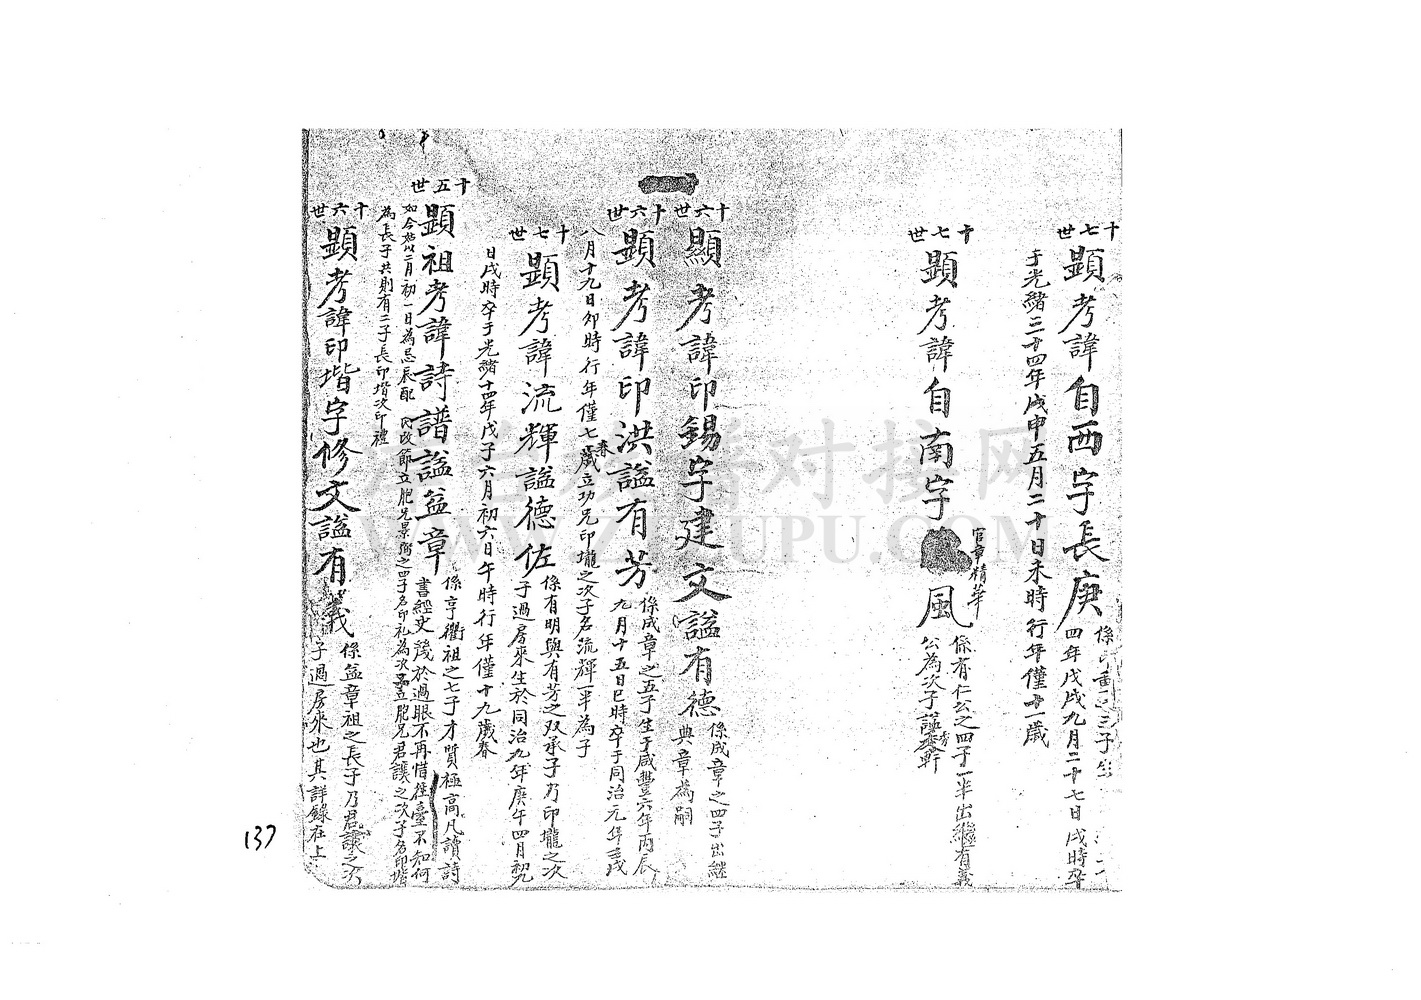 十七世
顕考諱自西字長庚
四年戊戌九月二十七日戌時卒
于光緒三十四年戊申五月二十日未時行年僅十一歲
十七世
顕考諱自南字風
官章精華
係有仁公之四子一半出繼有義
公為次子謚
十六世
顯考諱印錫字建文謚有德
係成章之四子出繼
典章為嗣
十六世
顕考諱印洪謚有芳
係成章之五子生于咸豐六年丙辰
九月十五日巳時卒于同治元年壬戌
八月十九日卯時行年僅七歲立功兄印壠之次子名流輝一半為子
十七世
顕考諱流輝謚德佐
係有明與有芳之双承子乃印壠之次
子過房來生於同治九年庚午四月初九
日戌時卒于光緒十四年戊子六月初六日午時行年僅十九歲
十五世
顕祖考諱詩譜謚益章
係亨衢祖之七子才質極高凡讀詩
書經史篾於過眼不再惜徃臺不知何
如今於二月初一日為忌辰配
內改節立胞兄景弼之四子名印礼為次子並胞兄君讓之次子名印堦
為長子共則有二子長印堦次印禮
十六世
顕考諱印堦字修文謚有義
係益章祖之長子乃君讓之次
子過房來也其詳錄在上
137
龙兰族谱对接网
WWW.ZUPU.COM